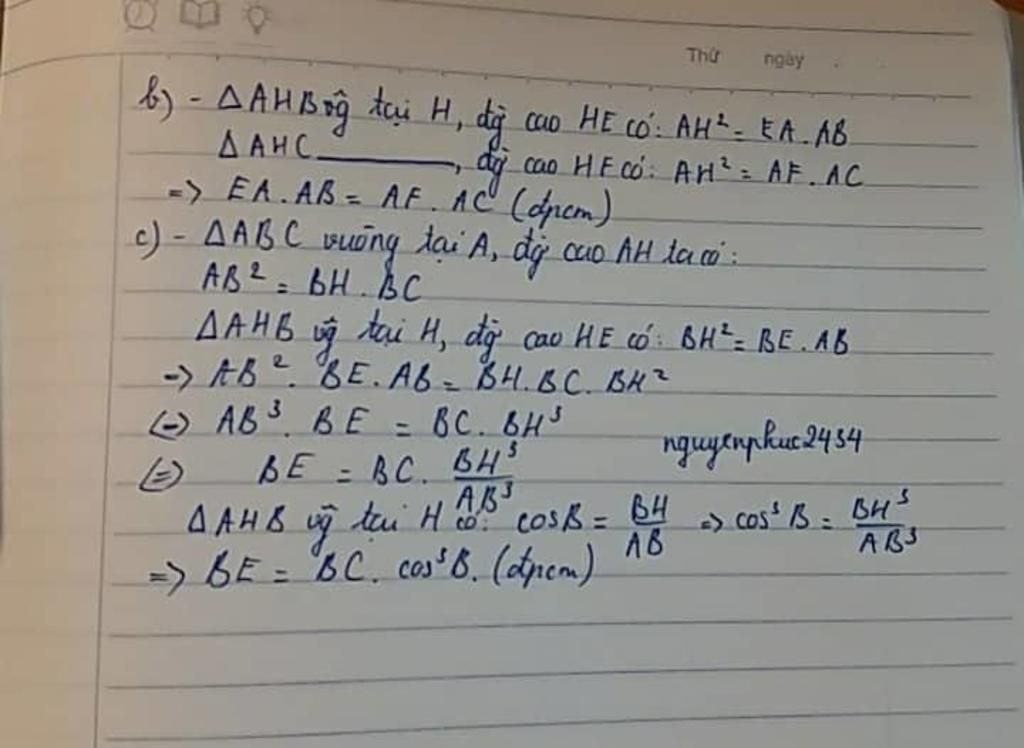 Thứ ngày
b) - ΔAHB vg̃ tại H, đg̀ cao HE có: AH² = EA.AB
ΔAHC ———, đg̀ cao HF có: AH² = AF.AC
=> EA.AB = AF.AC (đpcm)
c) - ΔABC vuông tại A, đg̀ cao AH ta có:
AB² = BH.BC
ΔAHB vg̃ tại H, đg̀ cao HE có: BH² = BE.AB
-> AB². BE.AB = BH.BC.BH²
(=) AB³. BE = BC.BH³
nguyenphuc2434
(=) BE = BC. BH³/AB³
ΔAHB vg̃ tại H có: cosB = BH/AB => cos³B = BH³/AB³
=> BE = BC. cos³B. (đpcm)